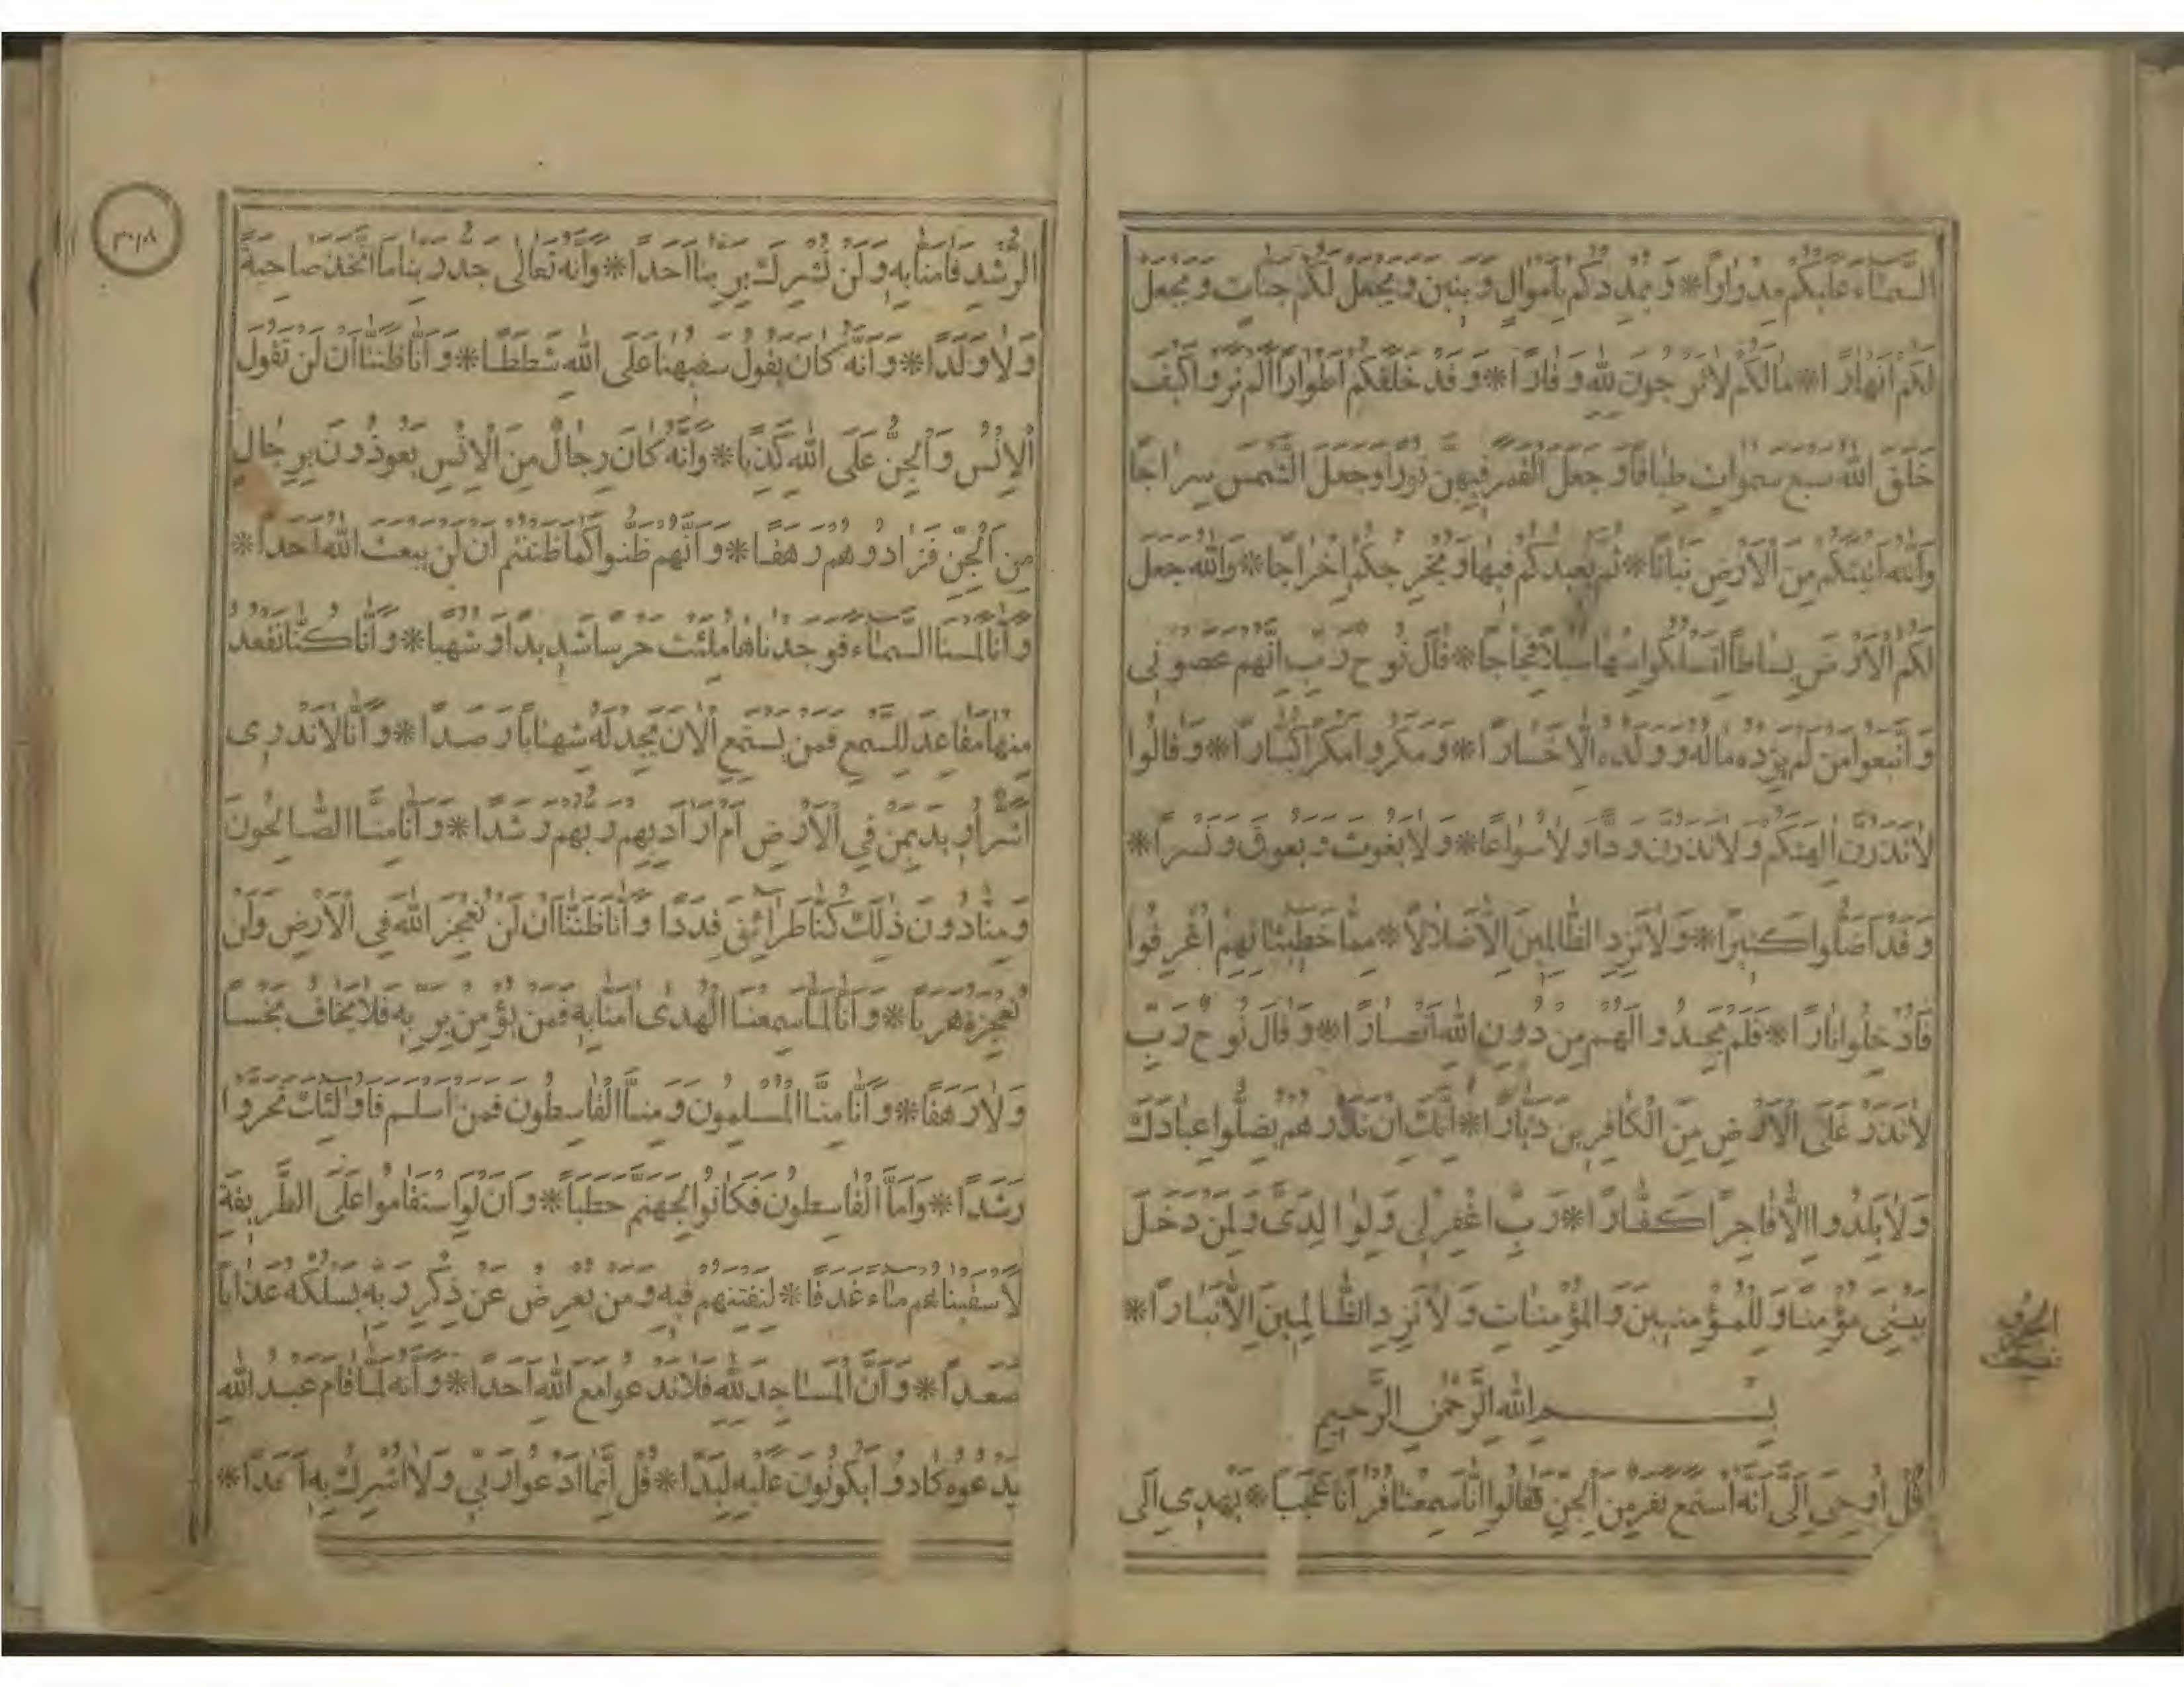 السَّمَاءَ عَلَيْكُمْ مِدْرَارًا * وَيُمْدِدْكُمْ بِأَمْوَالٍ وَبَنِينَ وَيَجْعَلْ لَكُمْ جَنَّاتٍ وَيَجْعَلْ
لَكُمْ أَنْهَارًا * مَالَكُمْ لَا تَرْجُونَ لِلَّهِ وَقَارًا * وَقَدْ خَلَقَكُمْ أَطْوَارًا أَلَمْ تَرَوْا كَيْفَ
خَلَقَ اللَّهُ سَبْعَ سَمَوَاتٍ طِبَاقًا وَجَعَلَ الْقَمَرَ فِيهِنَّ نُورًا وَجَعَلَ الشَّمْسَ سِرَاجًا
وَاللَّهُ أَنْبَتَكُمْ مِنَ الْأَرْضِ نَبَاتًا * ثُمَّ يُعِيدُكُمْ فِيهَا وَيُخْرِجُكُمْ إِخْرَاجًا * وَاللَّهُ جَعَلَ
لَكُمُ الْأَرْضَ بِسَاطًا لِتَسْلُكُوا مِنْهَا سُبُلًا فِجَاجًا * قَالَ نُوحٌ رَبِّ إِنَّهُمْ عَصَوْنِي
وَاتَّبَعُوا مَنْ لَمْ يَزِدْهُ مَالُهُ وَوَلَدُهُ إِلَّا خَسَارًا * وَمَكَرُوا مَكْرًا كُبَّارًا * وَقَالُوا
لَا تَذَرُنَّ آلِهَتَكُمْ وَلَا تَذَرُنَّ وَدًّا وَلَا سُوَاعًا * وَلَا يَغُوثَ وَيَعُوقَ وَنَسْرًا *
وَقَدْ أَضَلُّوا كَثِيرًا * وَلَا تَزِدِ الظَّالِمِينَ إِلَّا ضَلَالًا * مِمَّا خَطِيئَاتِهِمْ أُغْرِقُوا
فَأُدْخِلُوا نَارًا * فَلَمْ يَجِدُوا لَهُمْ مِنْ دُونِ اللَّهِ أَنْصَارًا * وَقَالَ نُوحٌ رَبِّ
لَا تَذَرْ عَلَى الْأَرْضِ مِنَ الْكَافِرِينَ دَيَّارًا * إِنَّكَ إِنْ تَذَرْهُمْ يُضِلُّوا عِبَادَكَ
وَلَا يَلِدُوا إِلَّا فَاجِرًا كَفَّارًا * رَبِّ اغْفِرْ لِي وَلِوَالِدَيَّ وَلِمَنْ دَخَلَ
بَيْتِيَ مُؤْمِنًا وَلِلْمُؤْمِنِينَ وَالْمُؤْمِنَاتِ وَلَا تَزِدِ الظَّالِمِينَ إِلَّا تَبَارًا *
بِسْمِ اللَّهِ الرَّحْمَنِ الرَّحِيمِ
قُلْ أُوحِيَ إِلَيَّ أَنَّهُ اسْتَمَعَ نَفَرٌ مِنَ الْجِنِّ فَقَالُوا إِنَّا سَمِعْنَا قُرْآنًا عَجَبًا * يَهْدِي إِلَى
الرُّشْدِ فَآمَنَّا بِهِ وَلَنْ نُشْرِكَ بِرَبِّنَا أَحَدًا * وَأَنَّهُ تَعَالَى جَدُّ رَبِّنَا مَا اتَّخَذَ صَاحِبَةً
وَلَا وَلَدًا * وَأَنَّهُ كَانَ يَقُولُ سَفِيهُنَا عَلَى اللَّهِ شَطَطًا * وَأَنَّا ظَنَنَّا أَنْ لَنْ تَقُولَ
الْإِنْسُ وَالْجِنُّ عَلَى اللَّهِ كَذِبًا * وَأَنَّهُ كَانَ رِجَالٌ مِنَ الْإِنْسِ يَعُوذُونَ بِرِجَالٍ
مِنَ الْجِنِّ فَزَادُوهُمْ رَهَقًا * وَأَنَّهُمْ ظَنُّوا كَمَا ظَنَنْتُمْ أَنْ لَنْ يَبْعَثَ اللَّهُ أَحَدًا *
وَأَنَّا لَمَسْنَا السَّمَاءَ فَوَجَدْنَاهَا مُلِئَتْ حَرَسًا شَدِيدًا وَشُهُبًا * وَأَنَّا كُنَّا نَقْعُدُ
مِنْهَا مَقَاعِدَ لِلسَّمْعِ فَمَنْ يَسْتَمِعِ الْآنَ يَجِدْ لَهُ شِهَابًا رَصَدًا * وَأَنَّا لَا نَدْرِي
أَشَرٌّ أُرِيدَ بِمَنْ فِي الْأَرْضِ أَمْ أَرَادَ بِهِمْ رَبُّهُمْ رَشَدًا * وَأَنَّا مِنَّا الصَّالِحُونَ
وَمِنَّا دُونَ ذَلِكَ كُنَّا طَرَائِقَ قِدَدًا وَأَنَّا ظَنَنَّا أَنْ لَنْ نُعْجِزَ اللَّهَ فِي الْأَرْضِ وَلَنْ
نُعْجِزَهُ هَرَبًا * وَأَنَّا لَمَّا سَمِعْنَا الْهُدَى آمَنَّا بِهِ فَمَنْ يُؤْمِنْ بِرَبِّهِ فَلَا يَخَافُ بَخْسًا
وَلَا رَهَقًا * وَأَنَّا مِنَّا الْمُسْلِمُونَ وَمِنَّا الْقَاسِطُونَ فَمَنْ أَسْلَمَ فَأُولَئِكَ تَحَرَّوْا
رَشَدًا * وَأَمَّا الْقَاسِطُونَ فَكَانُوا لِجَهَنَّمَ حَطَبًا * وَأَنْ لَوِ اسْتَقَامُوا عَلَى الطَّرِيقَةِ
لَأَسْقَيْنَاهُمْ مَاءً غَدَقًا * لِنَفْتِنَهُمْ فِيهِ وَمَنْ يُعْرِضْ عَنْ ذِكْرِ رَبِّهِ يَسْلُكْهُ عَذَابًا
صَعَدًا * وَأَنَّ الْمَسَاجِدَ لِلَّهِ فَلَا تَدْعُوا مَعَ اللَّهِ أَحَدًا * وَأَنَّهُ لَمَّا قَامَ عَبْدُ اللَّهِ
يَدْعُوهُ كَادُوا يَكُونُونَ عَلَيْهِ لِبَدًا * قُلْ إِنَّمَا أَدْعُو رَبِّي وَلَا أُشْرِكُ بِهِ أَحَدًا *